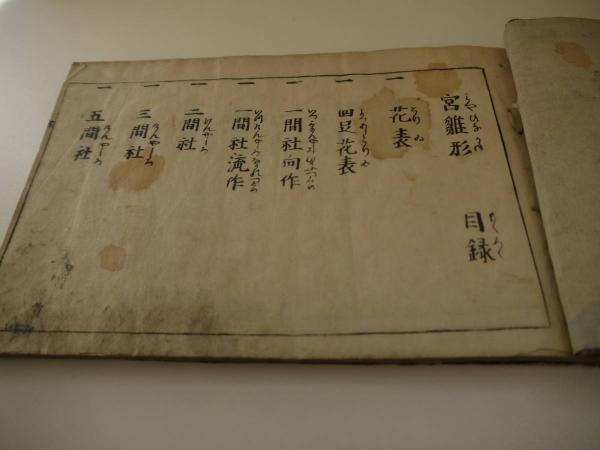 宮雛形 目録
一 花表
一 四足花表
一 一間社向作
一 一間社流作
一 二間社
一 三間社
一 五間社